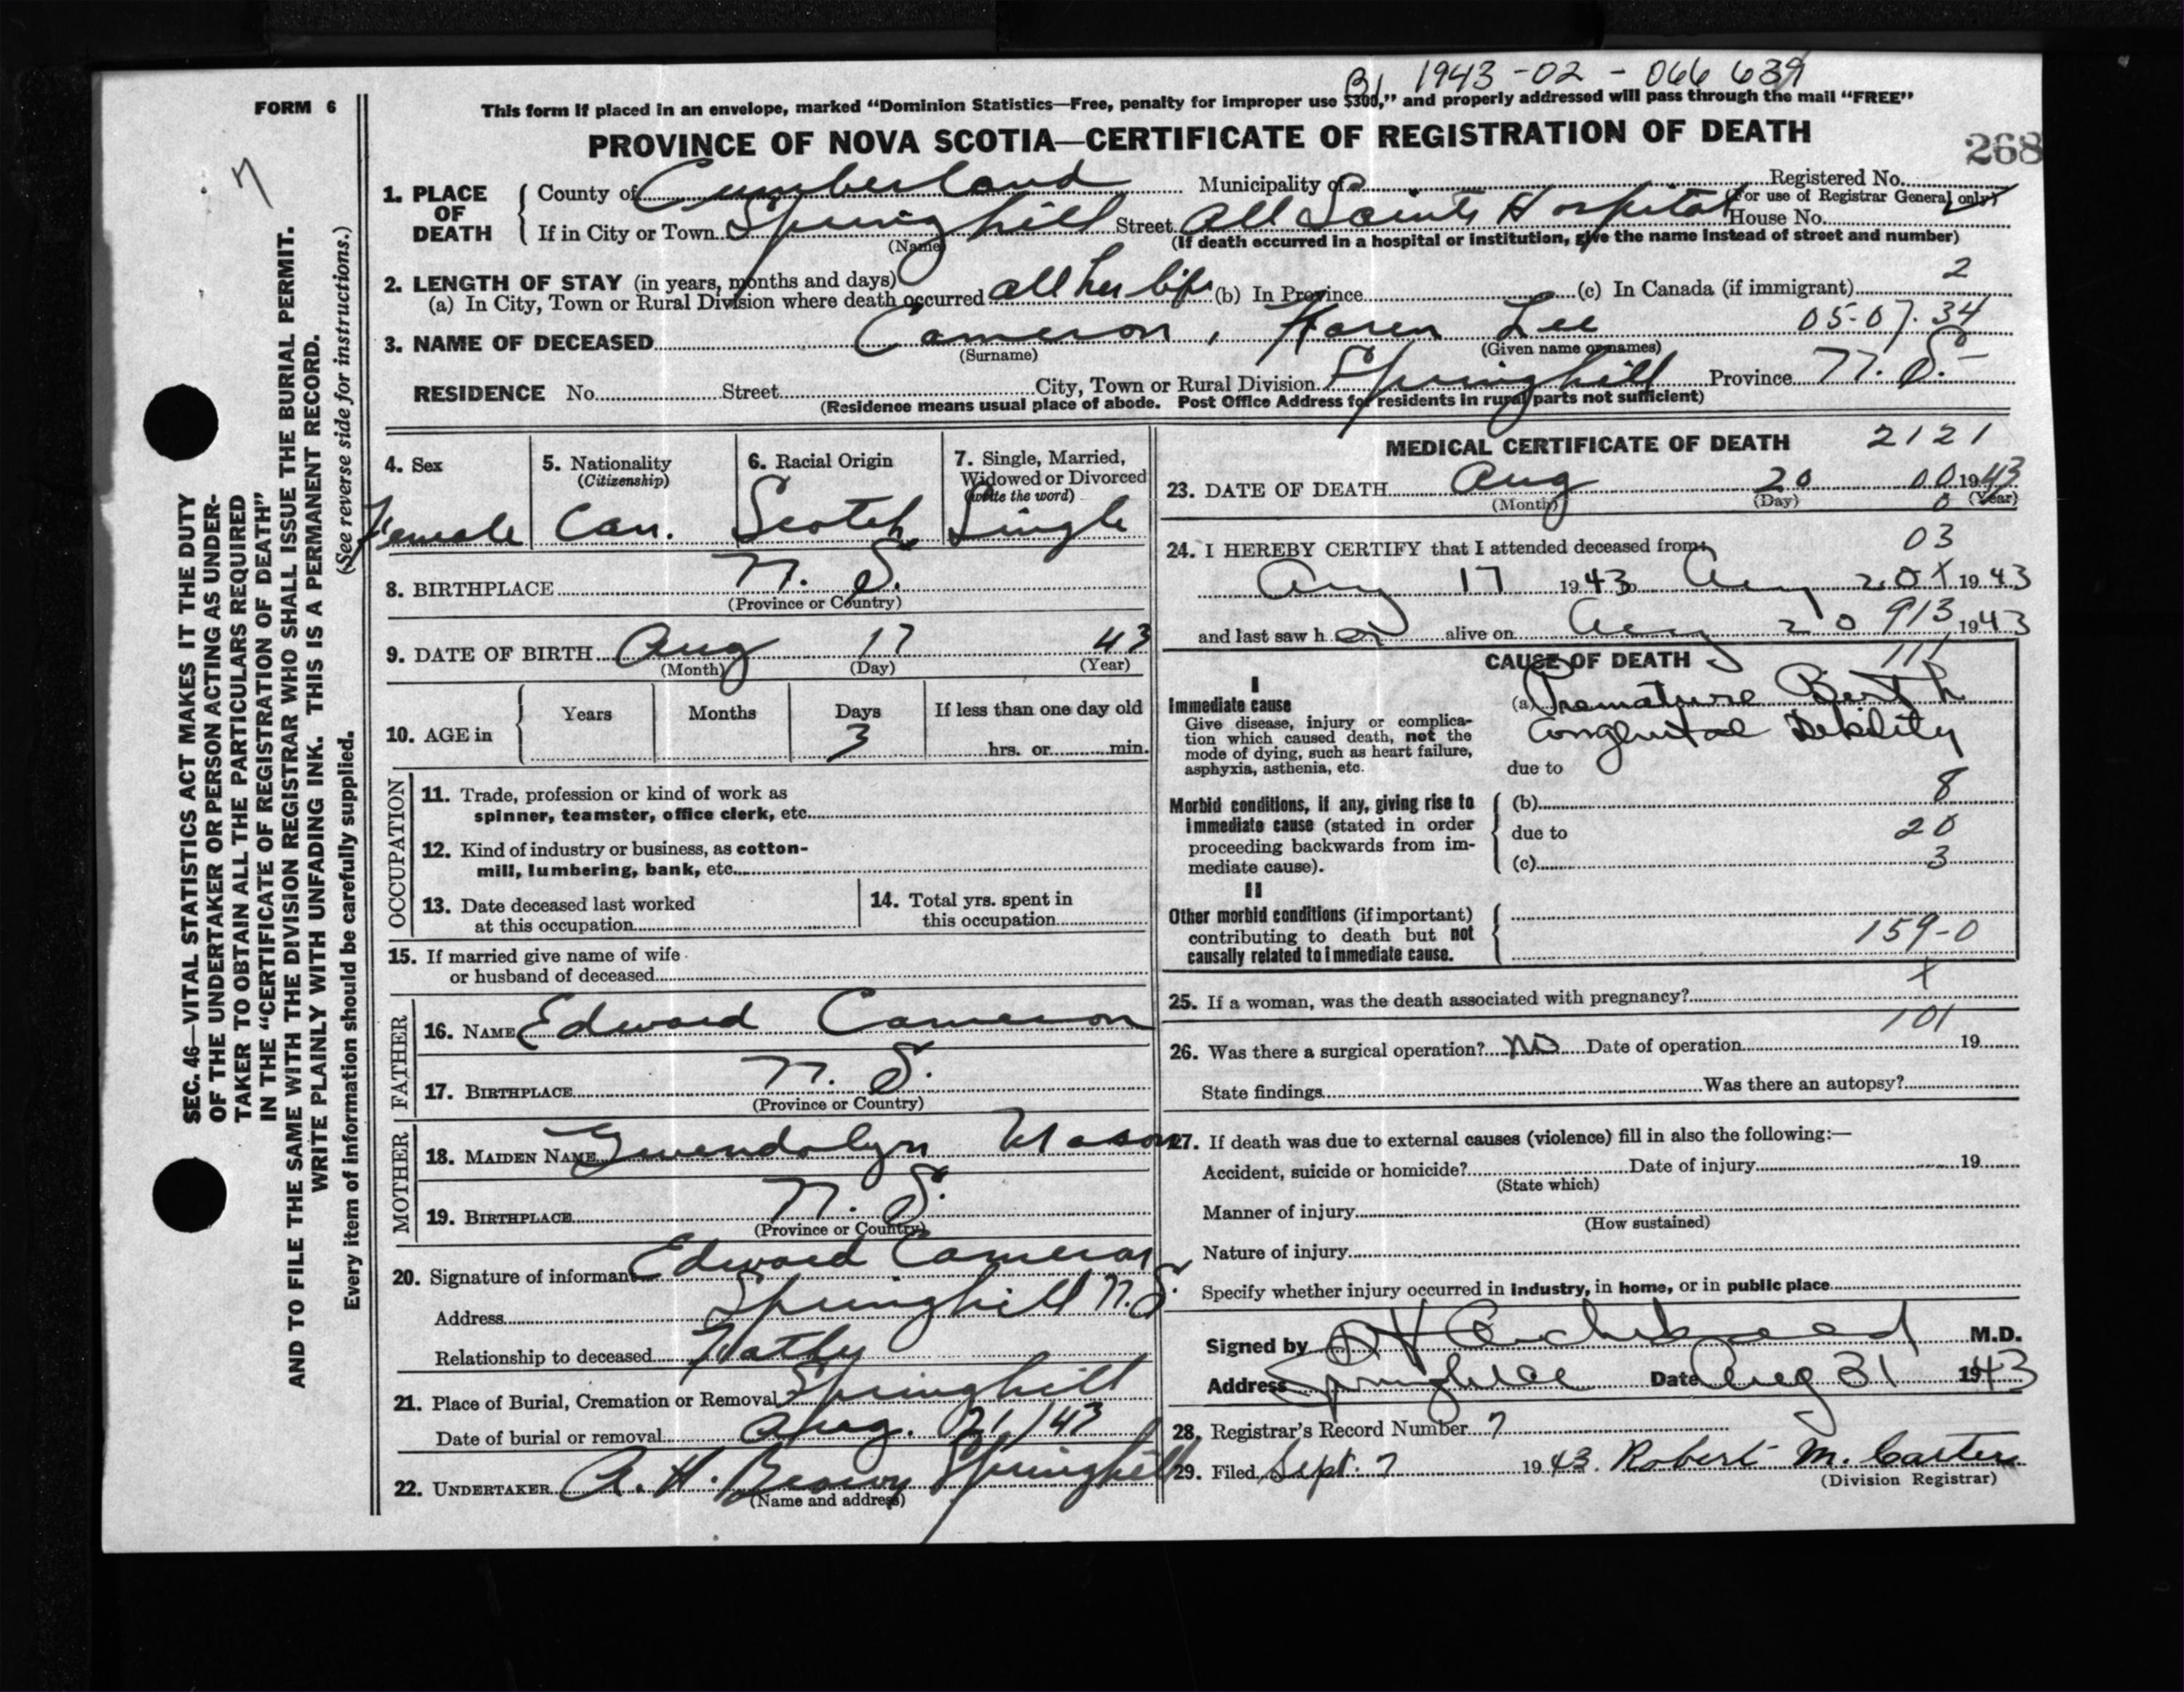 B1 1943-02-066 639
FORM 6
This form if placed in an envelope, marked “Dominion Statistics—Free, penalty for improper use $300,” and properly addressed will pass through the mail “FREE”
PROVINCE OF NOVA SCOTIA—CERTIFICATE OF REGISTRATION OF DEATH
268
7
SEC. 46—VITAL STATISTICS ACT MAKES IT THE DUTY
OF THE UNDERTAKER OR PERSON ACTING AS UNDER-
TAKER TO OBTAIN ALL THE PARTICULARS REQUIRED
IN THE “CERTIFICATE OF REGISTRATION OF DEATH”
AND TO FILE THE SAME WITH THE DIVISION REGISTRAR WHO SHALL ISSUE THE BURIAL PERMIT.
WRITE PLAINLY WITH UNFADING INK. THIS IS A PERMANENT RECORD.
Every item of information should be carefully supplied. (See reverse side for instructions.)
1. PLACE OF DEATH
County of Cumberland Municipality of Registered No.
(For use of Registrar General only)
If in City or Town Springhill Street All Saints Hospital House No.
(Name) (If death occurred in a hospital or institution, give the name instead of street and number)
2. LENGTH OF STAY (in years, months and days)
(a) In City, Town or Rural Division where death occurred all her life (b) In Province (c) In Canada (if immigrant) 2
3. NAME OF DECEASED Cameron, Karen Lee 05-07-34
(Surname) (Given name or names)
RESIDENCE No. Street City, Town or Rural Division Springhill Province N. S.
(Residence means usual place of abode. Post Office Address for residents in rural parts not sufficient)
4. Sex
Female
5. Nationality
(Citizenship)
Can.
6. Racial Origin
Scotch
7. Single, Married,
Widowed or Divorced
(write the word)
Single
8. BIRTHPLACE N. S.
(Province or Country)
9. DATE OF BIRTH Aug 17 43
(Month) (Day) (Year)
10. AGE in
Years Months Days If less than one day old
3 hrs. or min.
OCCUPATION
11. Trade, profession or kind of work as
spinner, teamster, office clerk, etc.
12. Kind of industry or business, as cotton-
mill, lumbering, bank, etc.
13. Date deceased last worked
at this occupation
14. Total yrs. spent in
this occupation
15. If married give name of wife
or husband of deceased
FATHER
16. NAME Edward Cameron
17. BIRTHPLACE N. S.
(Province or Country)
MOTHER
18. MAIDEN NAME Gwendolyn Mason
19. BIRTHPLACE N. S.
(Province or Country)
20. Signature of informant Edward Cameron
Address Springhill N.S.
Relationship to deceased Father
21. Place of Burial, Cremation or Removal Springhill
Date of burial or removal Aug. 21/43
22. UNDERTAKER A. H. Brown Springhill
(Name and address)
MEDICAL CERTIFICATE OF DEATH 2121
23. DATE OF DEATH Aug 20 00 1943
(Month) (Day) (Year)
0
24. I HEREBY CERTIFY that I attended deceased from: 03
Aug 17 1943 to Aug 20 X 1943
and last saw h er alive on Aug 20 913 1943
CAUSE OF DEATH 111
I
Immediate cause
Give disease, injury or complica-
tion which caused death, not the
mode of dying, such as heart failure,
asphyxia, asthenia, etc.
(a) Premature Birth
Congenital Debility
due to
Morbid conditions, if any, giving rise to
immediate cause (stated in order
proceeding backwards from im-
mediate cause).
(b) 8
due to 20
(c) 3
II
Other morbid conditions (if important)
contributing to death but not
causally related to immediate cause.
159-0
25. If a woman, was the death associated with pregnancy? X
101
26. Was there a surgical operation? No Date of operation 19
State findings Was there an autopsy?
27. If death was due to external causes (violence) fill in also the following:—
Accident, suicide or homicide? Date of injury 19
(State which)
Manner of injury
(How sustained)
Nature of injury
Specify whether injury occurred in industry, in home, or in public place
Signed by H Archibald M.D.
Address Springhill Date Aug 31 1943
28. Registrar's Record Number 7
29. Filed Sept. 7 1943. Robert M. Carter
(Division Registrar)